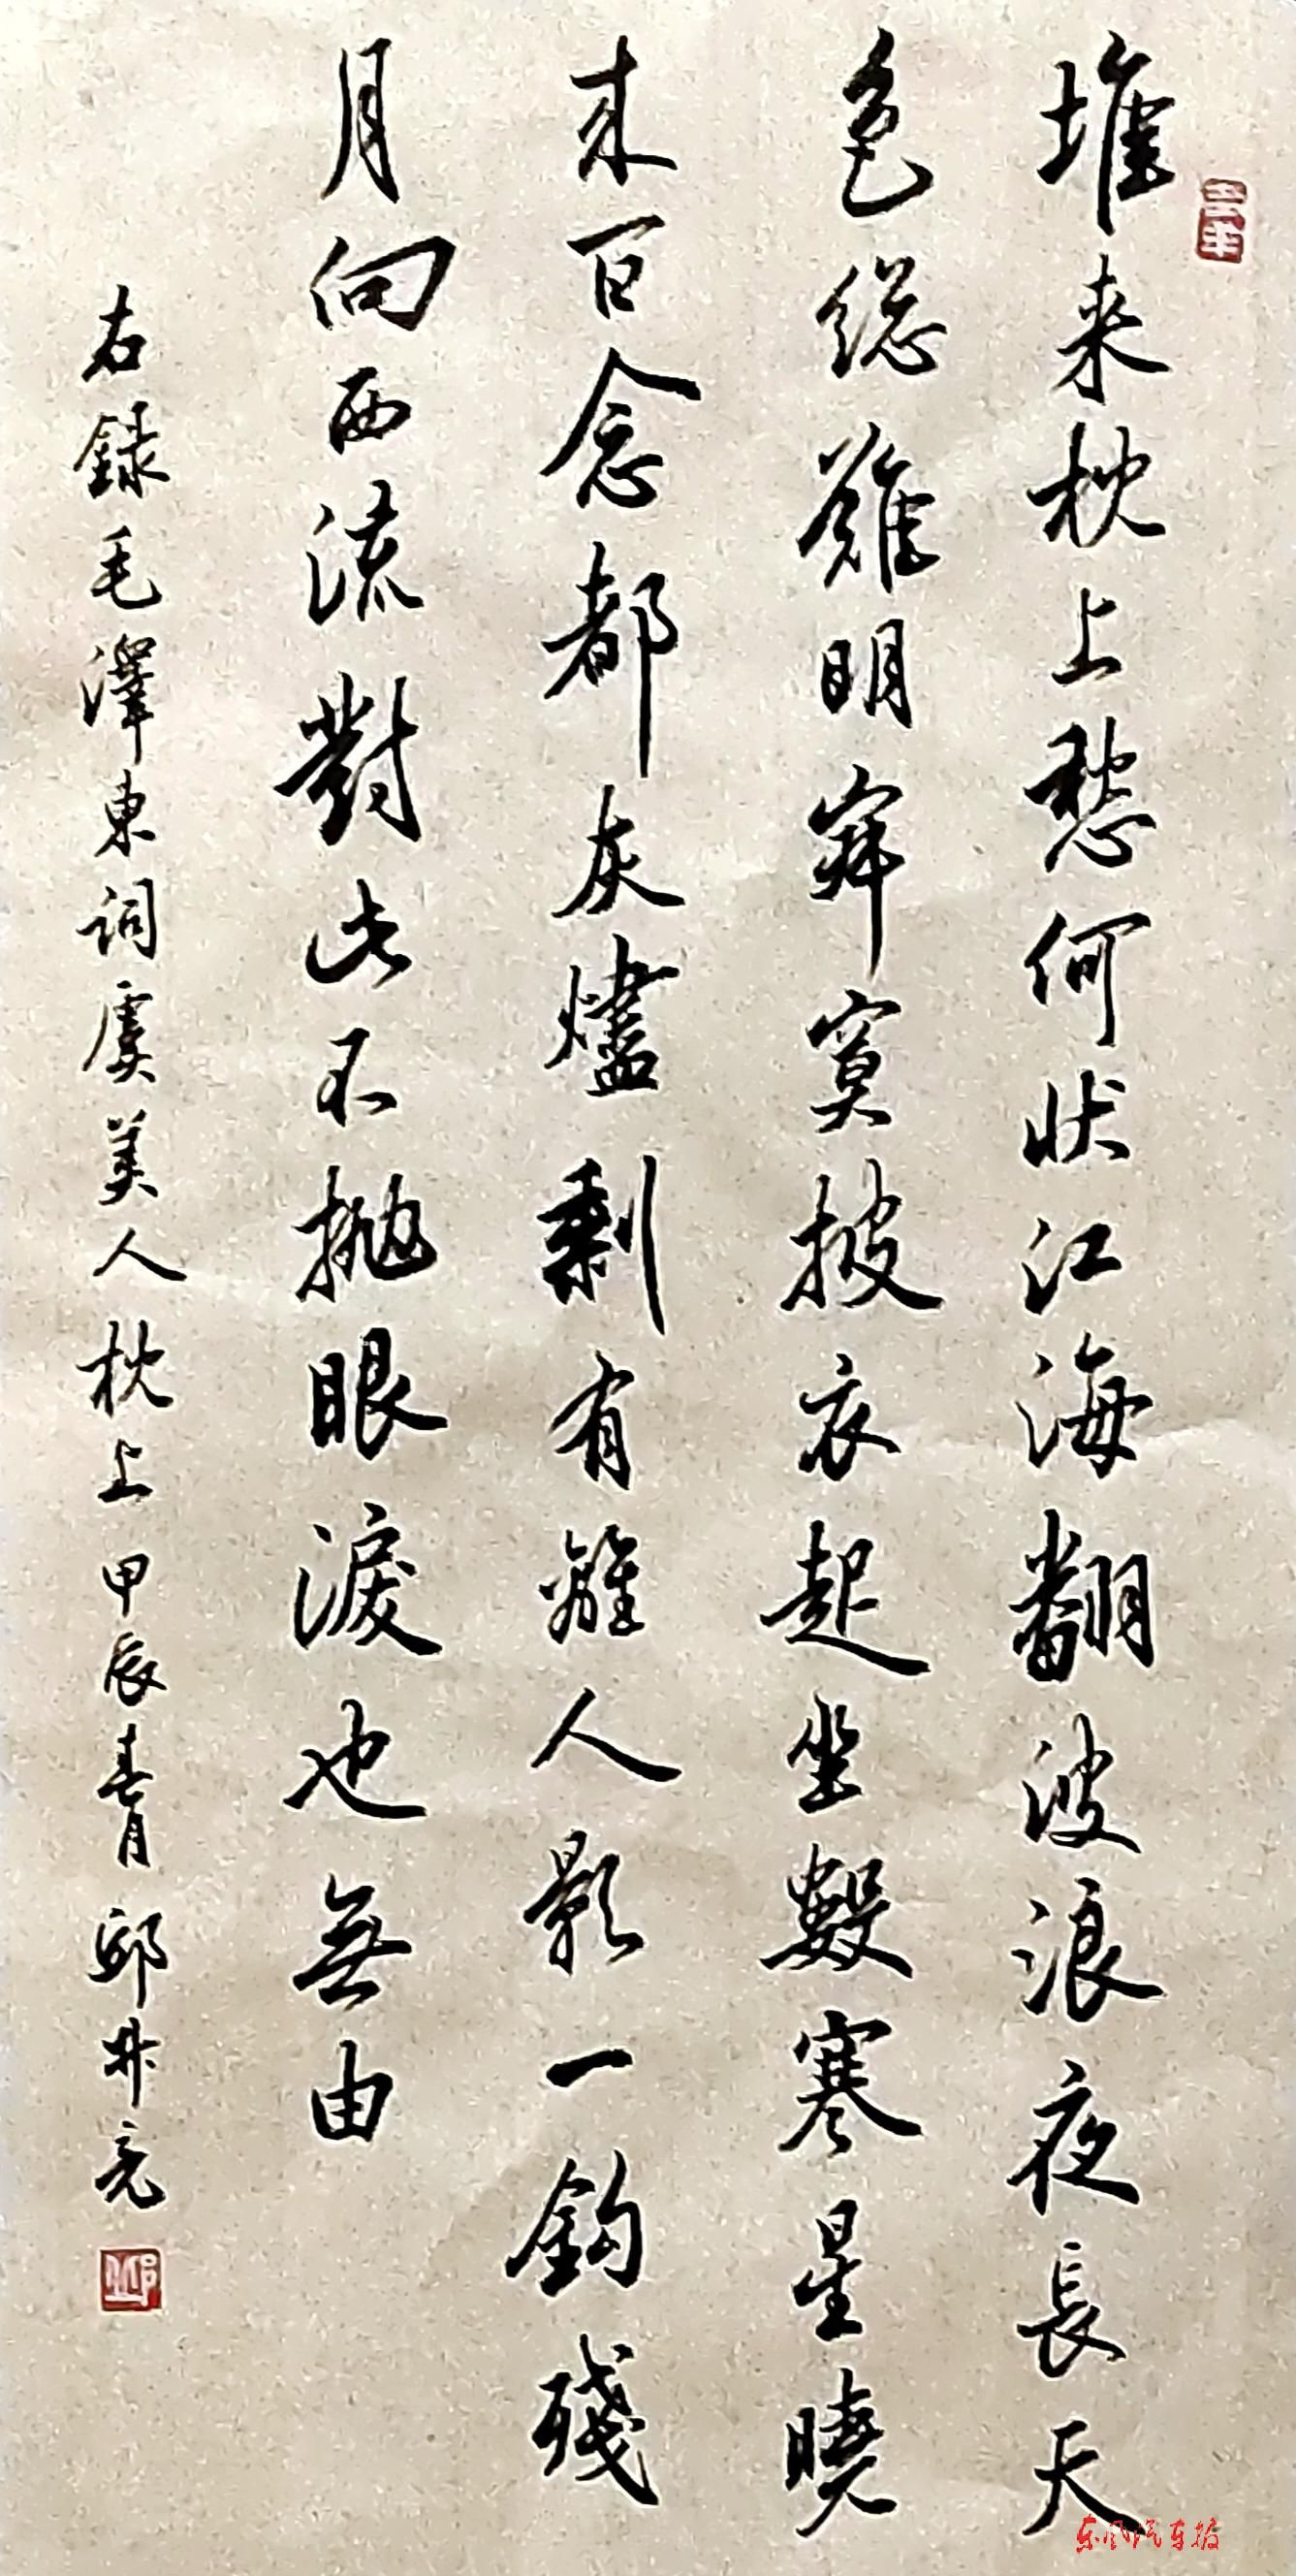 堆来枕上愁何状江海翻波浪夜長天
色總難明寂寞披衣起坐數寒星曉
来百念都灰燼剩有離人影一鈎殘
月向西流對此不抛眼淚也無由
右録毛澤東詞虞美人枕上甲辰春月邱井亮
东风汽车报